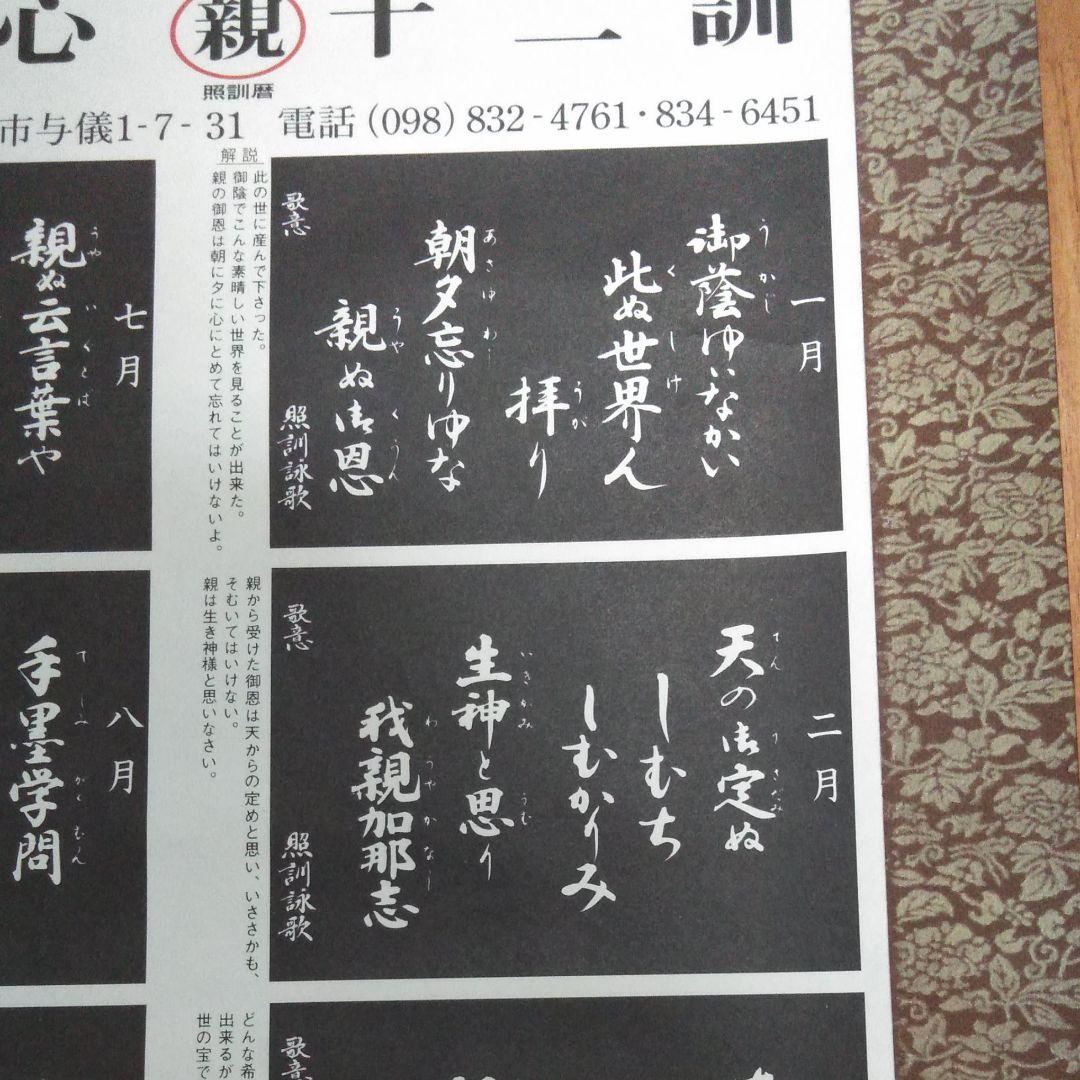 心 親 十 二 訓
照訓暦
市与儀1-7-31 電話(098)832-4761・834-6451
一月
御蔭ゆいなかい
うかじ
此ぬ世界ん
くしけ
拝り
うが
朝夕忘りゆな
あさゆわし
親ぬ御恩
うやくうん
歌意
照訓詠歌
解説
此の世に産んで下さった。
御陰でこんな素晴しい世界を見ることが出来た。
親の御恩は朝に夕に心にとめて忘れてはいけないよ。
七月
親ぬ云言葉や
うやいくとば
二月
天の御定ぬ
てん
さだみ
しむち
しむかりみ
生神と思り
いきかみうむ
我親加那志
わうやかなし
歌意
照訓詠歌
親から受けた御恩は天からの定めと思い、いささかも、
そむいてはいけない。
親は生き神様と思いなさい。
八月
手墨学問
てしみがくむん
歌意
どんな希
出来るが
世の宝で